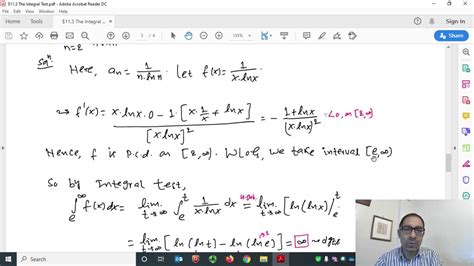 §11.3 The Integral Test.pdf - Adobe Acrobat Reader DC
File Edit View Sign Window Help
Home Tools
n=2
Solⁿ Here, aₙ = 1/(n·ln n). Let f(x) = 1/(x·lnx)
→ f'(x) = (x·lnx·0 - 1·[x·1/x + lnx])/[x·lnx]² = - (1+lnx)/(x·lnx)² = <0, on [2,∞)
Hence, f is p.c.d on [2,∞). WLOG, we take interval [e,∞)
So by Integral test,
∫ₑ^∞ f(x)dx = lim t→∞ ∫ₑ^t 1/(x·lnx) dx = lim t→∞ [ln(lnx)]ₑ^t
= lim t→∞ [ln(lnt) - ln(lne)] = ∞